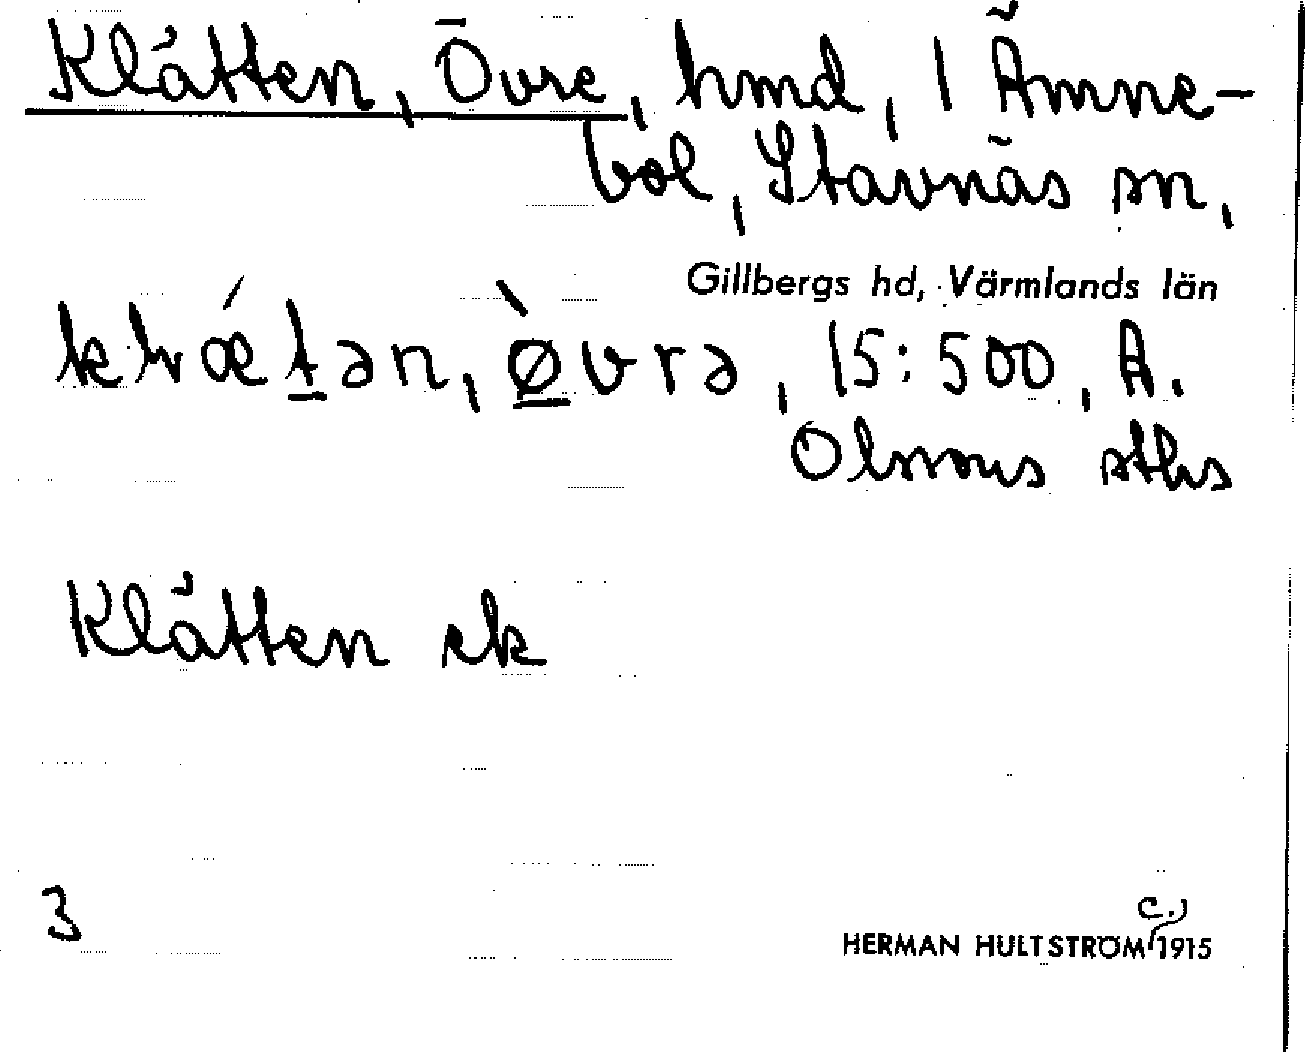 Klätten, Övre, hmd, 1 Ämne-
bol, Stavnäs sn,
Gillbergs hd, Värmlands län
klǽt̲ən, ø̲̀vrə, 15:500, A.
Olssons sths
Klätten ek
3
HERMAN HULTSTRÖM c.) 1915